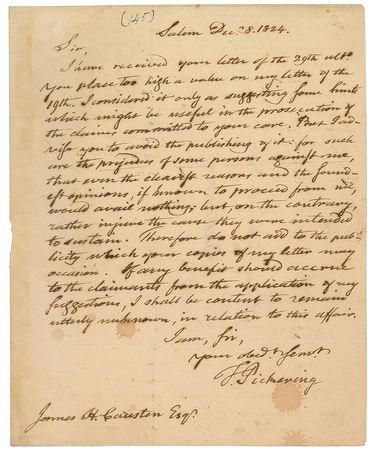 (145)
Salem Decr. 8. 1824.
Sir,
I have received your letter of the 29th ulto.
You place too high a value on my letter of the
19th. I considered it only as suggesting some hints
which might be useful in the prosecution of
the claims committed to your care. But I ad-
vise you to avoid the publishing of it: for such
are the prejudices of some persons against me,
that even the clearest reasons and the found-
est opinions, if known to proceed from me,
would avail nothing; but, on the contrary,
rather injure the cause they were intended
to sustain. Therefore do not add to the pub-
licity which your copies of my letter may
occasion. If any benefit should accrue
to the claimants from the application of my
suggestions, I shall be content to remain
utterly unknown, in relation to this affair.
I am, sir,
your obedt. servt
T. Pickering
James H. Causten Esqr.